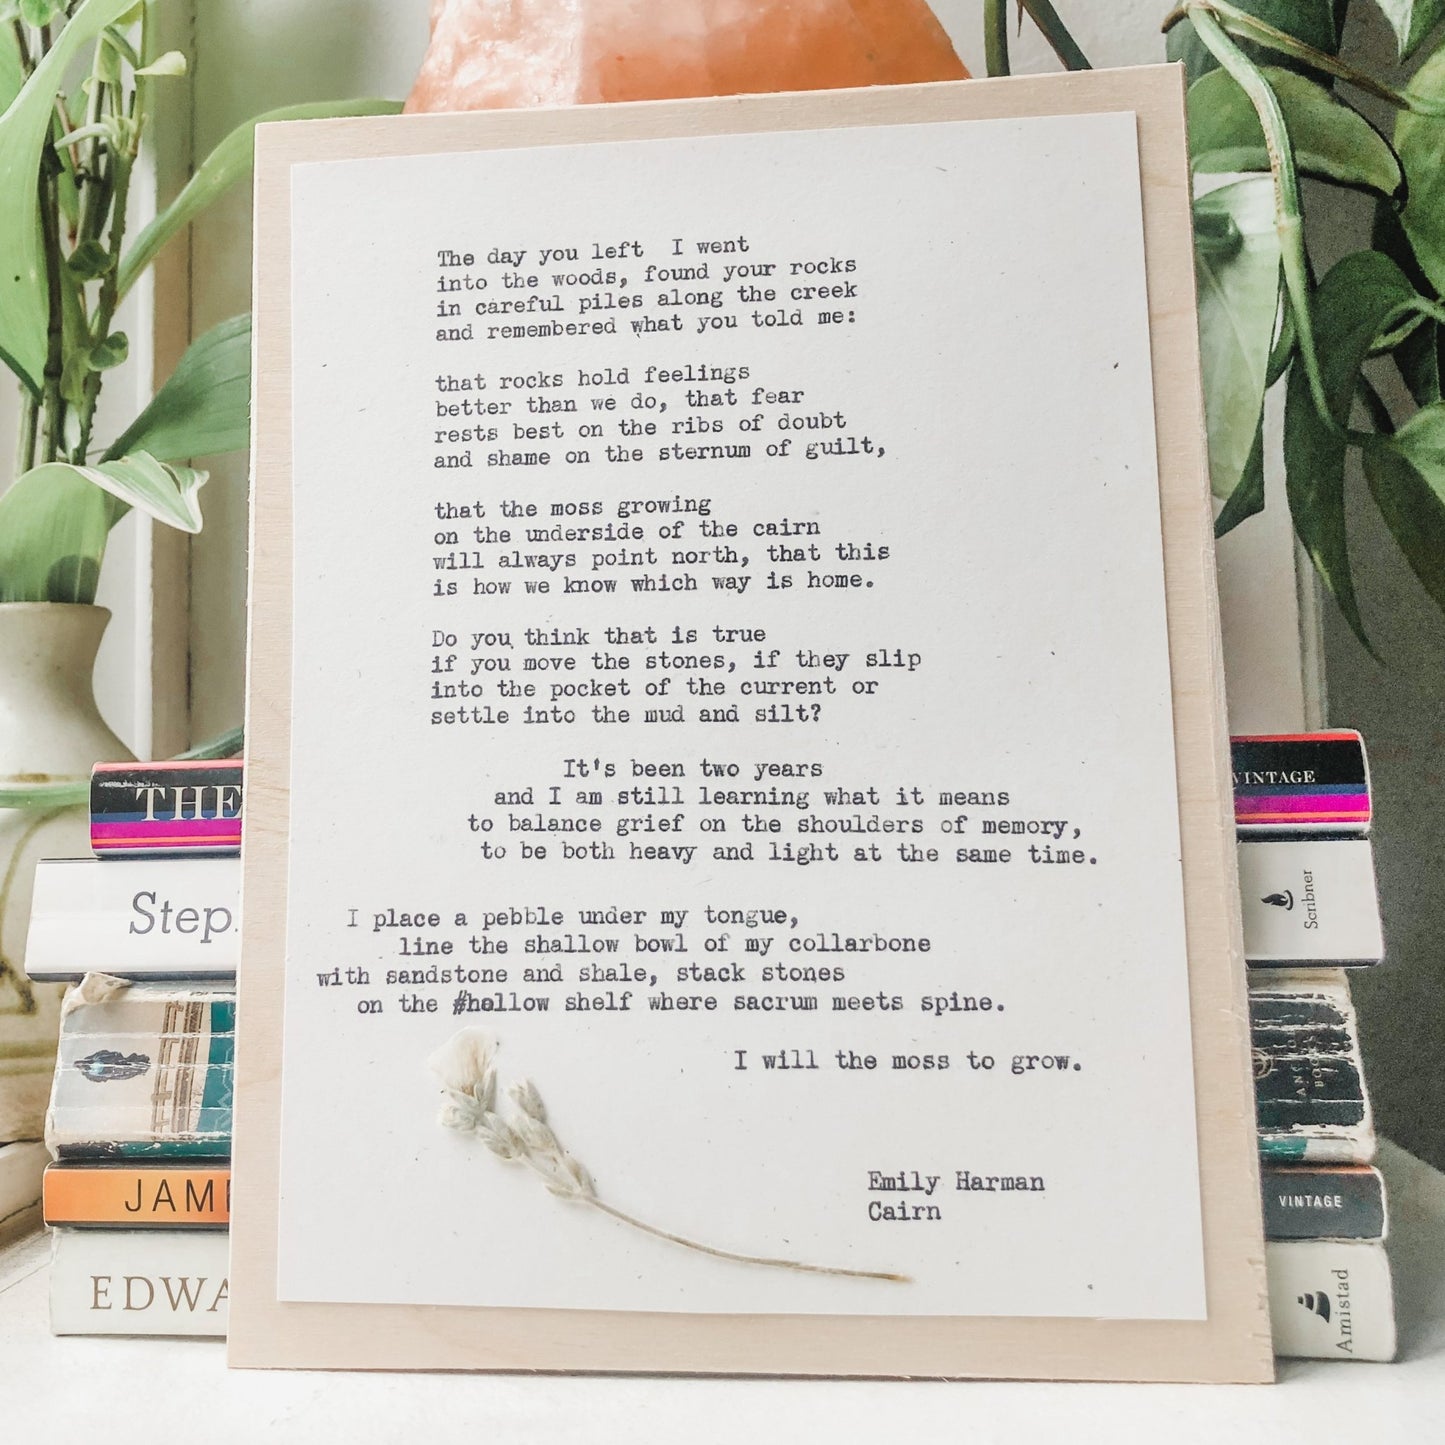 The day you left I went
into the woods, found your rocks
in careful piles along the creek
and remembered what you told me:
that rocks hold feelings
better than we do, that fear
rests best on the ribs of doubt
and shame on the sternum of guilt,
that the moss growing
on the underside of the cairn
will always point north, that this
is how we know which way is home.
Do you think that is true
if you move the stones, if they slip
into the pocket of the current or
settle into the mud and silt?
It's been two years
and I am still learning what it means
to balance grief on the shoulders of memory,
to be both heavy and light at the same time.
I place a pebble under my tongue,
line the shallow bowl of my collarbone
with sandstone and shale, stack stones
on the #hollow shelf where sacrum meets spine.
I will the moss to grow.
Emily Harman
Cairn
THE
Step
JAM
EDWA
VINTAGE
Scribner
VINTAGE
Amistad